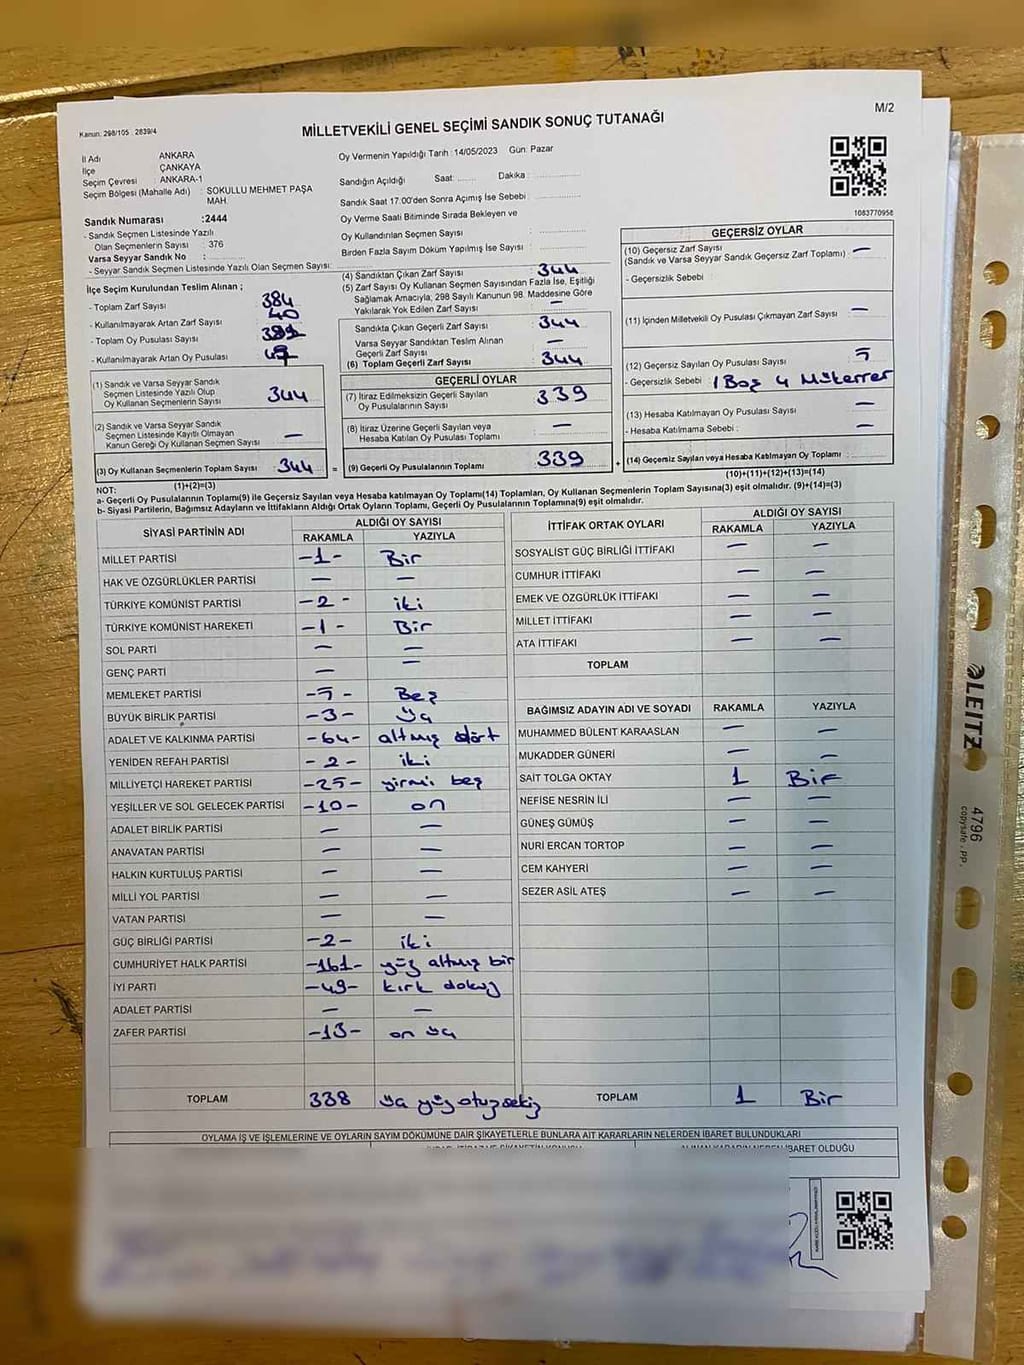 Kanun: 298/105 : 2839/4
M/2
MİLLETVEKİLİ GENEL SEÇİMİ SANDIK SONUÇ TUTANAĞI
İl Adı ANKARA
İlçe ÇANKAYA
Seçim Çevresi ANKARA-1
Seçim Bölgesi (Mahalle Adı) : SOKULLU MEHMET PAŞA MAH.
Sandık Numarası :2444
- Sandık Seçmen Listesinde Yazılı
Olan Seçmenlerin Sayısı : 376
Varsa Seyyar Sandık No :
- Seyyar Sandık Seçmen Listesinde Yazılı Olan Seçmen Sayısı:
Oy Vermenin Yapıldığı Tarih : 14/05/2023 Gün: Pazar
Sandığın Açıldığı Saat: Dakika :
Sandık Saat 17.00'den Sonra Açımış İse Sebebi :
Oy Verme Saati Bitiminde Sırada Bekleyen ve
Oy Kullandırılan Seçmen Sayısı :
Birden Fazla Sayım Döküm Yapılmış İse Sayısı :
1083770958
İlçe Seçim Kurulundan Teslim Alınan ;
- Toplam Zarf Sayısı 384
- Kullanılmayarak Artan Zarf Sayısı 40
- Toplam Oy Pusulası Sayısı
- Kullanılmayarak Artan Oy Pusulası
(1) Sandık ve Varsa Seyyar Sandık
Seçmen Listesinde Yazılı Olup
Oy Kullanan Seçmenlerin Sayısı 344
(2) Sandık ve Varsa Seyyar Sandık
Seçmen Listesinde Kayıtlı Olmayan
Kanun Gereği Oy Kullanan Seçmen Sayısı —
(3) Oy Kullanan Seçmenlerin Toplam Sayısı 344
(1)+(2)=(3)
(4) Sandıktan Çıkan Zarf Sayısı 344
(5) Zarf Sayısı Oy Kullanan Seçmen Sayısından Fazla İse, Eşitliği
Sağlamak Amacıyla, 298 Sayılı Kanunun 98. Maddesine Göre
Yakılarak Yok Edilen Zarf Sayısı : —
Sandıkta Çıkan Geçerli Zarf Sayısı 344
Varsa Seyyar Sandıktan Teslim Alınan
Geçerli Zarf Sayısı —
(6) Toplam Geçerli Zarf Sayısı 344
GEÇERLİ OYLAR
(7) İtiraz Edilmeksizin Geçerli Sayılan
Oy Pusulalarının Sayısı 339
(8) İtiraz Üzerine Geçerli Sayılan veya
Hesaba Katılan Oy Pusulası Toplamı —
= (9) Geçerli Oy Pusulalarının Toplamı 339 +
GEÇERSİZ OYLAR
(10) Geçersiz Zarf Sayısı
(Sandık ve Varsa Seyyar Sandık Geçersiz Zarf Toplamı) : —
- Geçersizlik Sebebi :
(11) İçinden Milletvekili Oy Pusulası Çıkmayan Zarf Sayısı —
(12) Geçersiz Sayılan Oy Pusulası Sayısı 5
- Geçersizlik Sebebi : 1 Boş 4 Mükerrer
(13) Hesaba Katılmayan Oy Pusulası Sayısı —
- Hesaba Katılmama Sebebi : —
(14) Geçersiz Sayılan veya Hesaba Katılmayan Oy Toplamı :
(10)+(11)+(12)+(13)=(14)
NOT:
a- Geçerli Oy Pusulalarının Toplamı(9) ile Geçersiz Sayılan veya Hesaba katılmayan Oy Toplamı(14) Toplamları, Oy Kullanan Seçmenlerin Toplam Sayısına(3) eşit olmalıdır. (9)+(14)=(3)
b- Siyasi Partilerin, Bağımsız Adayların ve İttifakların Aldığı Ortak Oyların Toplamı, Geçerli Oy Pusulalarının Toplamına(9) eşit olmalıdır.
SİYASİ PARTİNİN ADI ALDIĞI OY SAYISI
RAKAMLA YAZIYLA
MİLLET PARTİSİ -1- Bir
HAK VE ÖZGÜRLÜKLER PARTİSİ — —
TÜRKİYE KOMÜNİST PARTİSİ -2- iki
TÜRKİYE KOMÜNİST HAREKETİ -1- Bir
SOL PARTİ — —
GENÇ PARTİ — —
MEMLEKET PARTİSİ -5- Beş
BÜYÜK BİRLİK PARTİSİ -3- üç
ADALET VE KALKINMA PARTİSİ -64- altmış dört
YENİDEN REFAH PARTİSİ -2- iki
MİLLİYETÇİ HAREKET PARTİSİ -25- yirmi beş
YEŞİLLER VE SOL GELECEK PARTİSİ -10- on
ADALET BİRLİK PARTİSİ — —
ANAVATAN PARTİSİ — —
HALKIN KURTULUŞ PARTİSİ — —
MİLLİ YOL PARTİSİ — —
VATAN PARTİSİ — —
GÜÇ BİRLİĞİ PARTİSİ -2- iki
CUMHURİYET HALK PARTİSİ -161- yüz altmış bir
İYİ PARTİ -49- kırk dokuz
ADALET PARTİSİ — —
ZAFER PARTİSİ -13- on üç
TOPLAM 338 üç yüz otuz sekiz
İTTİFAK ORTAK OYLARI ALDIĞI OY SAYISI
RAKAMLA YAZIYLA
SOSYALİST GÜÇ BİRLİĞİ İTTİFAKI — —
CUMHUR İTTİFAKI — —
EMEK VE ÖZGÜRLÜK İTTİFAKI — —
MİLLET İTTİFAKI — —
ATA İTTİFAKI — —
TOPLAM
BAĞIMSIZ ADAYIN ADI VE SOYADI RAKAMLA YAZIYLA
MUHAMMED BÜLENT KARAASLAN — —
MUKADDER GÜNERİ — —
SAİT TOLGA OKTAY 1 Bir
NEFİSE NESRİN İLİ — —
GÜNEŞ GÜMÜŞ — —
NURİ ERCAN TORTOP — —
CEM KAHYERİ — —
SEZER ASİL ATEŞ — —
TOPLAM 1 Bir
OYLAMA İŞ VE İŞLEMLERİNE VE OYLARIN SAYIM DÖKÜMÜNE DAİR ŞİKAYETLERLE BUNLARA AİT KARARLARIN NELERDEN İBARET BULUNDUKLARI
İBARET OLDUĞU
LEITZ
4796
copysafe . PP.